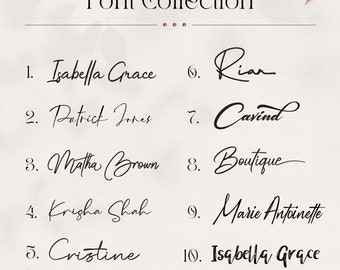 Font Collection
1. Isabella Grace
2. Patrick Jones
3. Matha Brown
4. Krisha Shah
5. Cristine
6. Rian
7. Cavind
8. Boutique
9. Marie Antoinette
10. Isabella Grace